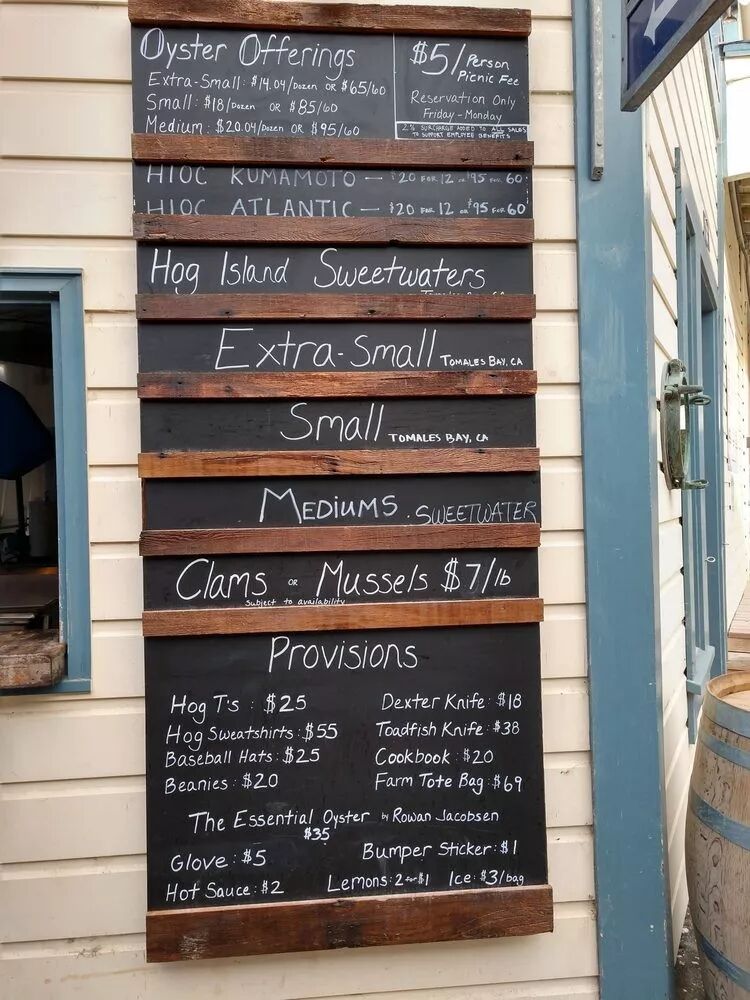 Oyster Offerings
Extra-Small: $14.04/Dozen OR $65/60
Small: $18/Dozen OR $85/60
Medium: $20.04/Dozen OR $95/60
$5/Person
Picnic Fee
Reservation Only
Friday - Monday
2% SURCHARGE ADDED TO ALL SALES
TO SUPPORT EMPLOYEE BENEFITS
HIOC KUMAMOTO — $20 FOR 12 or $95 FOR 60
HIOC ATLANTIC — $20 FOR 12 or $95 FOR 60
Hog Island Sweetwaters
Extra-Small TOMALES BAY, CA
Small TOMALES BAY, CA
MEDIUMS. SWEETWATER
Clams OR Mussels $7/lb
subject to availability
Provisions
Hog T's : $25 Dexter Knife: $18
Hog Sweatshirts: $55 Toadfish Knife: $38
Baseball Hats: $25 Cookbook: $20
Beanies: $20 Farm Tote Bag: $69
The Essential Oyster by Rowan Jacobsen
$35
Glove: $5 Bumper Sticker: $1
Hot Sauce: $2 Lemons: 2 for $1 Ice: $3/bag